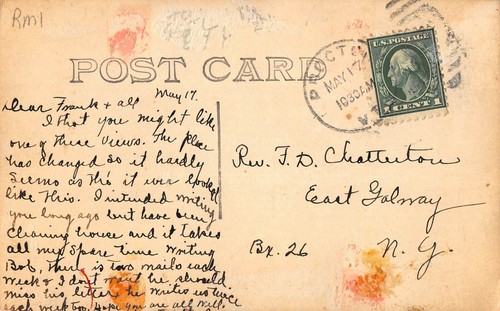 RM1
POST CARD
PROCTO
MAY 17
1030AM
U.S. POSTAGE
1 CENT 1
May 17.
Dear Frank & all
I that you might like
one of these views. The place
has changed so it hardly
seems as tho it ever looked
like this. I intended writing
you long ago but have been
cleaning house and it takes
all my spare time writing
Bob, there is two mails each
week & I don't want he should
miss his letter he writes us twice
each week too. Hope you are all well.
Rev. F. D. Chatterton
East Galway
Bx. 26 N. Y.